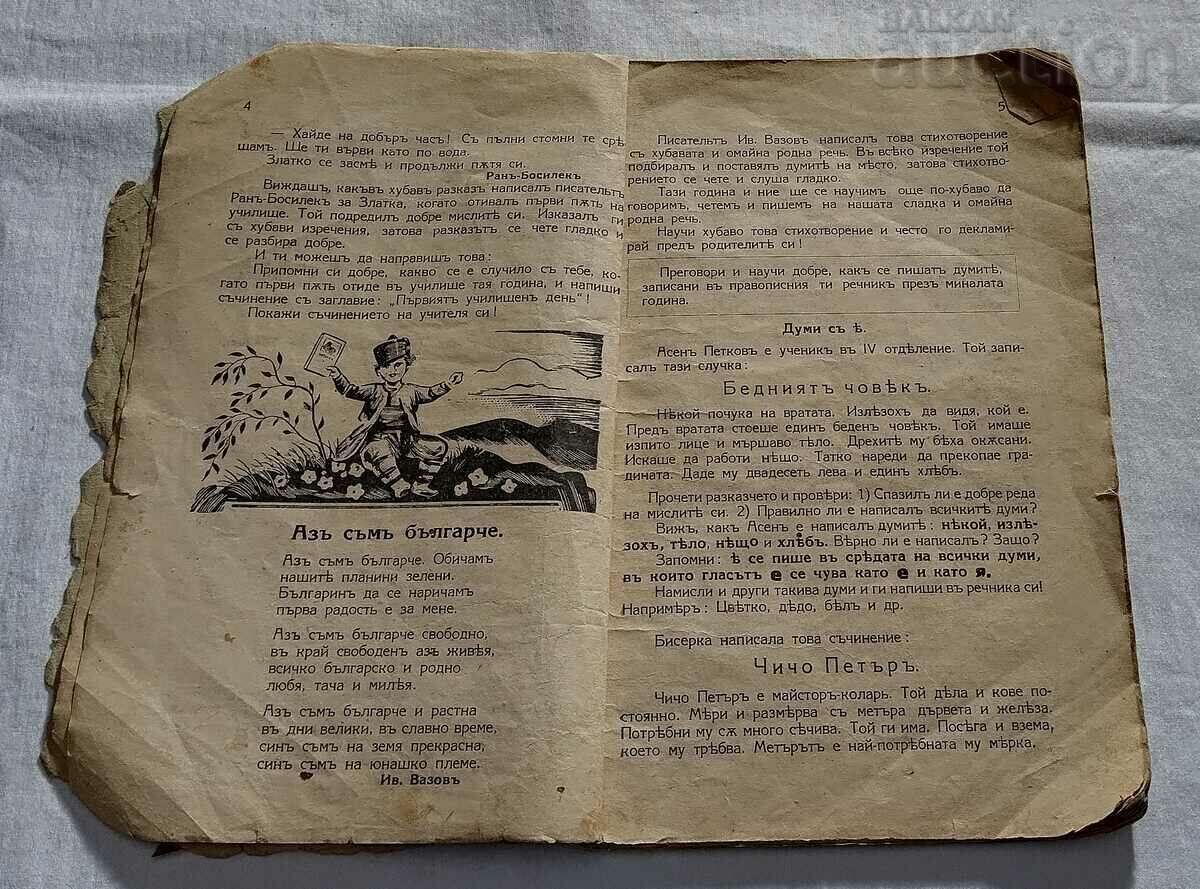 BALKAN
auction
4
— Хайде на добъръ часъ! Съ пълни стомни те срѣ
щамъ. Ще ти върви като по вода.
Златко се засмѣ и продължи пѫтя си.
Ранъ-Босилекъ
Виждашъ, какъвъ хубавъ разказъ написалъ писательтъ
Ранъ-Босилекъ за Златка, когато отивалъ първи пѫть на
училище. Той подредилъ добре мислитѣ си. Изказалъ ги
съ хубави изречения, затова разказътъ се чете гладко и
се разбира добре.
И ти можешъ да направишъ това:
Припомни си добре, какво се е случило съ тебе, ко-
гато първи пѫть отиде въ училище тая година, и напиши
съчинение съ заглавие: „Първиятъ училищенъ день“!
Покажи съчинението на учителя си!
Азъ съмъ българче.
Азъ съмъ българче. Обичамъ
нашитѣ планини зелени.
Българинъ да се наричамъ
първа радость е за мене.
Азъ съмъ българче свободно,
въ край свободенъ азъ живѣя,
всичко българско и родно
любя, тача и милѣя.
Азъ съмъ българче и растна
въ дни велики, въ славно време,
синъ съмъ на земя прекрасна,
синъ съмъ на юнашко племе.
Ив. Вазовъ
5
Писательтъ Ив. Вазовъ написалъ това стихотворение
съ хубавата и омайна родна речь. Въ всѣко изречение той
подбиралъ и поставялъ думитѣ на мѣсто, затова стихотво-
рението се чете и слуша гладко.
Тази година и ние ще се научимъ още по-хубаво да
говоримъ, четемъ и пишемъ на нашата сладка и омайна
родна речь.
Научи хубаво това стихотворение и често го деклами-
рай предъ родителитѣ си!
Преговори и научи добре, какъ се пишатъ думитѣ,
записани въ правописния ти речникъ презъ миналата
година.
Думи съ ѣ.
Асенъ Петковъ е ученикъ въ IV отдѣление. Той запи-
салъ тази случка:
Бедниятъ човѣкъ.
Нѣкой почука на вратата. Излѣзохъ да видя, кой е.
Предъ вратата стоеше единъ беденъ човѣкъ. Той имаше
изпито лице и мършаво тѣло. Дрехитѣ му бѣха окѫсани.
Искаше да работи нѣщо. Татко нареди да прекопае гра-
дината. Даде му двадесеть лева и единъ хлѣбъ.
Прочети разказчето и провѣри: 1) Спазилъ ли е добре реда
на мислитѣ си. 2) Правилно ли е написалъ всичкитѣ думи?
Вижъ, какъ Асенъ е написалъ думитѣ: нѣкой, излѣ-
зохъ, тѣло, нѣщо и хлѣбъ. Вѣрно ли е написалъ? Защо?
Запомни: ѣ се пише въ срѣдата на всички думи,
въ които гласътъ е се чува като е и като я.
Намисли и други такива думи и ги напиши въ речника си!
Напримѣръ: Цвѣтко, дѣдо, бѣлъ и др.
Бисерка написала това съчинение:
Чичо Петъръ.
Чичо Петъръ е майсторъ-коларь. Той дѣла и кове по-
стоянно. Мѣри и размѣрва съ метъра дървета и желѣза.
Потрѣбни му сѫ много сѣчива. Той ги има. Посѣга и взема,
което му трѣбва. Метърътъ е най-потрѣбната му мѣрка.